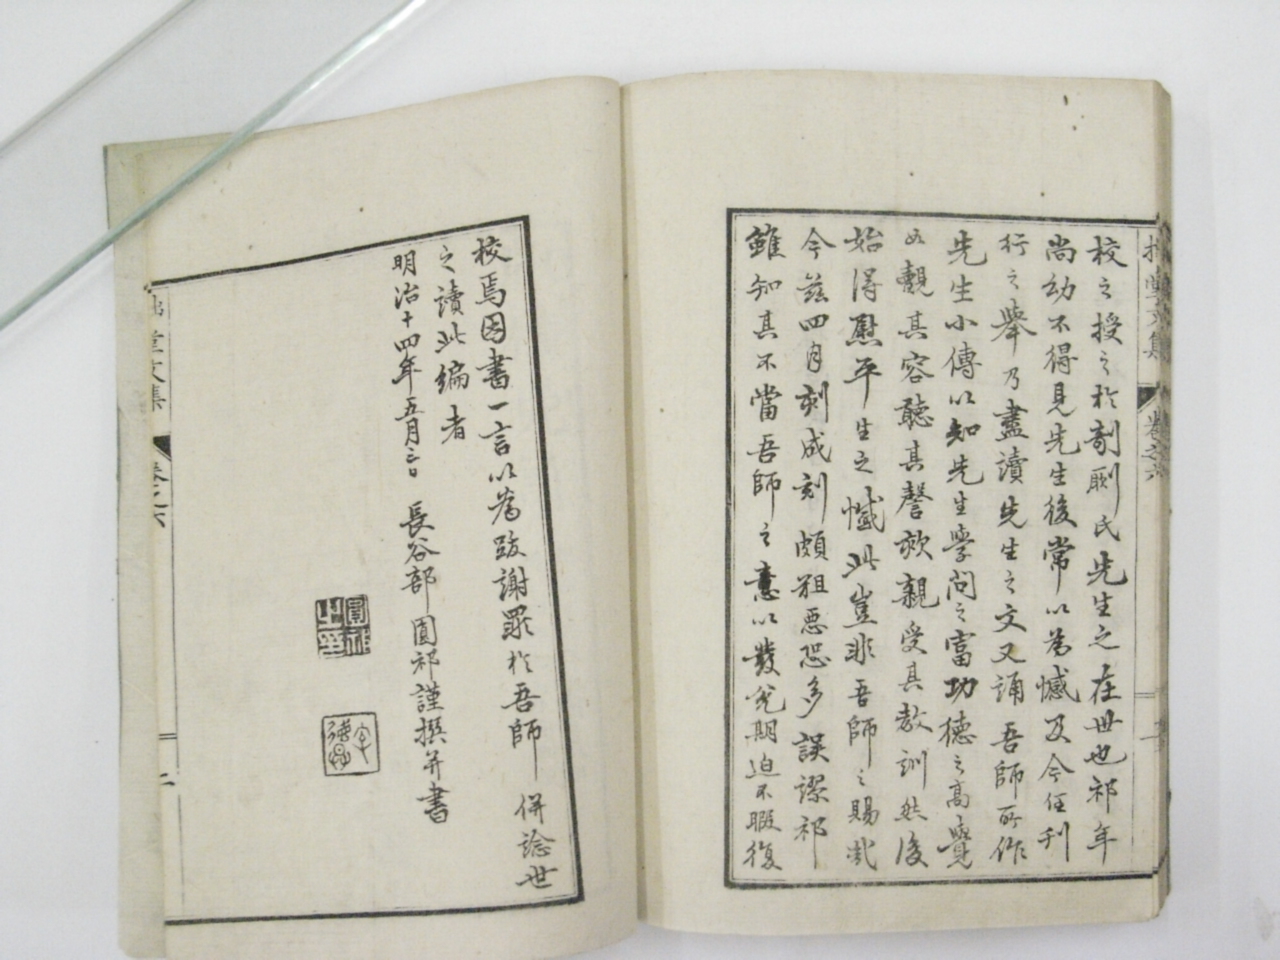 文集
卷之六
校之授之於剞劂氏先生之在世也祁年
尚幼不得見先生後常以為憾及今任刊
行之舉乃盡讀先生之文又誦吾師所作
先生小傳以知先生學問之富功德之高覺
如覩其容聽其謦欬親受其教訓然後
始得慰平生之憾此豈非吾師之賜哉
今茲四月刻成刻頗粗惡恐多誤謬祁
雖知其不當吾師之意以發兌期迫不暇復
校焉因書一言以為跋謝罪於吾師併諗世
之讀此編者
明治十四年五月 長谷部圓祁謹撰并書
圓祁之印
字
堂文集
卷之六
二